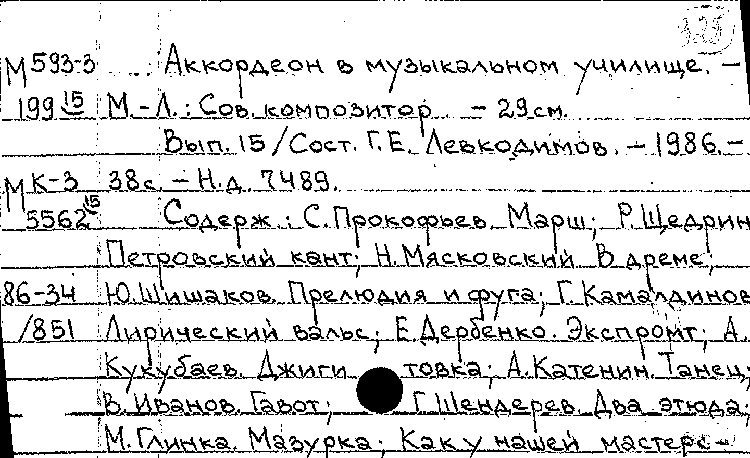 325
М593-3 Аккордеон в музыкальном училище. –
199 15 М.-Л.: Сов. композитор – 29см.
Вып. 15/Сост. Г.Е. Левкодимов. – 1986. –
МК-3 38с. – Н.д. 7489.
5562 15 Содерж.: С.Прокофьев. Марш; Р.Щедрин
Петровский кант; Н.Мясковский В дреме;
86-34 Ю.Шишаков. Прелюдия и фуга; Г.Камалдинов
/851 Лирический вальс; Е.Дербенко. Экспромт; А.
Кукубаев. Джиги товка; А.Катенин. Танец;
В.Иванов. Гавот; Г.Шендерев. Два этюда;
М.Глинка. Мазурка; Как у нашей мастерс-